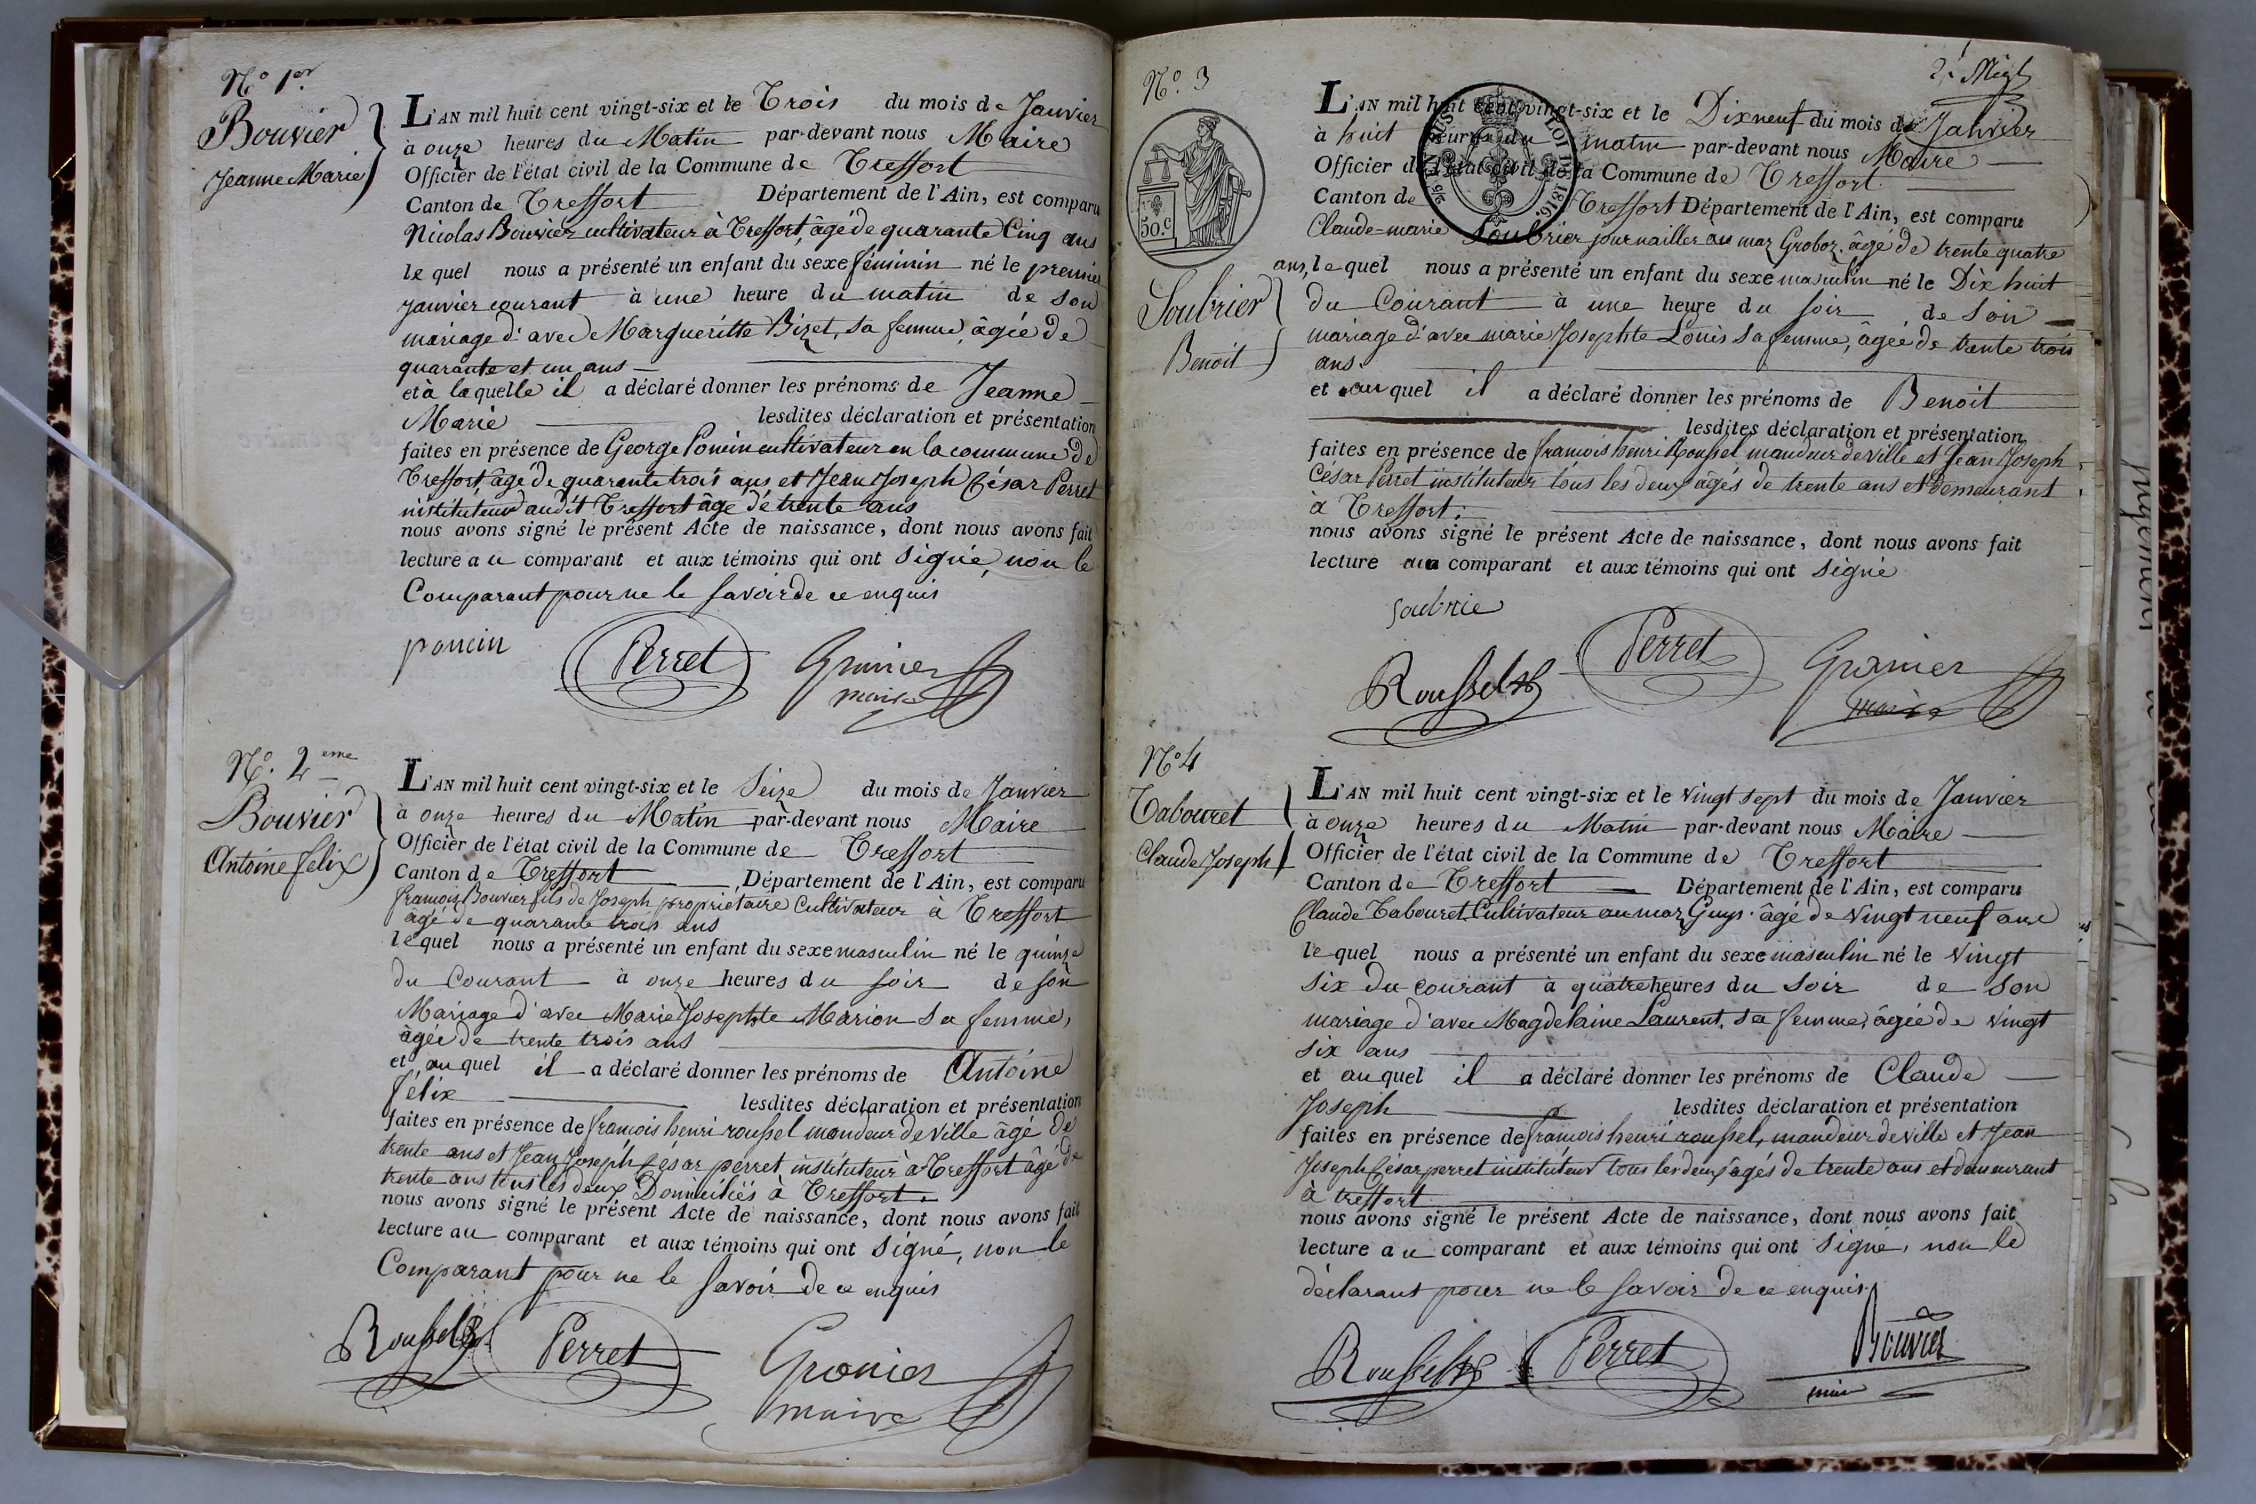 N.º 1.er
Bouvier
Jeanne Marie
L'AN mil huit cent vingt-six et le Trois du mois de Janvier
à onze heures du Matin par-devant nous Maire
Officier de l'état civil de la Commune de Treffort
Canton de Treffort Département de l'Ain, est comparu
Nicolas Bouvier cultivateur à Treffort, âgé de quarante Cinq ans
le quel nous a présenté un enfant du sexe féminin né le premier
janvier courant à une heure du matin de son
mariage d'avec Margueritte Bizet, sa femme, âgée de
quarante et un ans
et à laquelle il a déclaré donner les prénoms de Jeanne
Marie lesdites déclaration et présentation
faites en présence de George Poncin cultivateur en la commune de
Treffort, âgé de quarante trois ans et Jean Joseph César Perret
instituteur audit Treffort âgé de trente ans
nous avons signé le présent Acte de naissance, dont nous avons fait
lecture au comparant et aux témoins qui ont signé, non le
Comparant pour ne le savoir de ce enquis
poncin Perret Granier
maire
N.º 2.eme
Bouvier
Antoine felix
L'AN mil huit cent vingt-six et le Seize du mois de Janvier
à onze heures du Matin par-devant nous Maire
Officier de l'état civil de la Commune de Treffort
Canton de Treffort Département de l'Ain, est comparu
françois Bouvier fils de Joseph propriétaire Cultivateur à Treffort
âgé de quarante trois ans
le quel nous a présenté un enfant du sexe masculin né le quinze
du Courant à onze heures du soir de son
Mariage d'avec Marie Josephte Marion sa femme,
âgée de trente trois ans
et au quel il a déclaré donner les prénoms de Antoine
félix lesdites déclaration et présentation
faites en présence de françois henri roussel mandeur de ville âgé de
trente ans et Jean Joseph Cesar perret instituteur à Treffort âgé de
trente ans tous les deux Domiciliés à Treffort.
nous avons signé le présent Acte de naissance, dont nous avons fait
lecture au comparant et aux témoins qui ont signé, non le
Comparant pour ne le savoir de ce enquis
Roussel Perret Granier
maire
N.º 3
LOI DE 1816.
50.c
Soubrier
Benoit
L'AN mil huit cent vingt-six et le Dix neuf du mois de Janvier
à huit heures du matin par-devant nous Maire
Officier de l'état civil de la Commune de Treffort
Canton de Treffort Département de l'Ain, est comparu
Claude-marie Soubrier journailler au maz Groboz. âgé de trente quatre
ans, le quel nous a présenté un enfant du sexe masculin né le Dix huit
du Courant à une heure du soir de son
mariage d'avec marie Josephte Louis sa femme, âgée de trente trois
ans
et au quel il a déclaré donner les prénoms de Benoit
lesdites déclaration et présentation
faites en présence de françois henri Roussel mandeur de ville et Jean Joseph
César Perret instituteur tous les deux âgés de trente ans et Demeurant
à Treffort.
nous avons signé le présent Acte de naissance, dont nous avons fait
lecture au comparant et aux témoins qui ont signé
soubrie
Roussel Perret Granier
maire
N.º 4
Tabouret
Claude Joseph
L'AN mil huit cent vingt-six et le vingt sept du mois de Janvier
à onze heures du Matin par-devant nous Maire
Officier de l'état civil de la Commune de Treffort
Canton de Treffort Département de l'Ain, est comparu
Claude Tabouret Cultivateur au maz Guys. âgé de vingt neuf ans
le quel nous a présenté un enfant du sexe masculin né le vingt
six du courant à quatre heures du soir de son
mariage d'avec Magdelaine Laurent, sa femme, âgée de vingt
six ans
et au quel il a déclaré donner les prénoms de Claude
Joseph lesdites déclaration et présentation
faites en présence de françois henri roussel, mandeur de ville et Jean
Joseph César perret instituteur tous les deux âgés de trente ans et demeurant
à treffort
nous avons signé le présent Acte de naissance, dont nous avons fait
lecture au comparant et aux témoins qui ont signé, non le
déclarant pour ne le savoir de ce enquis.
Roussel Perret Bouvier